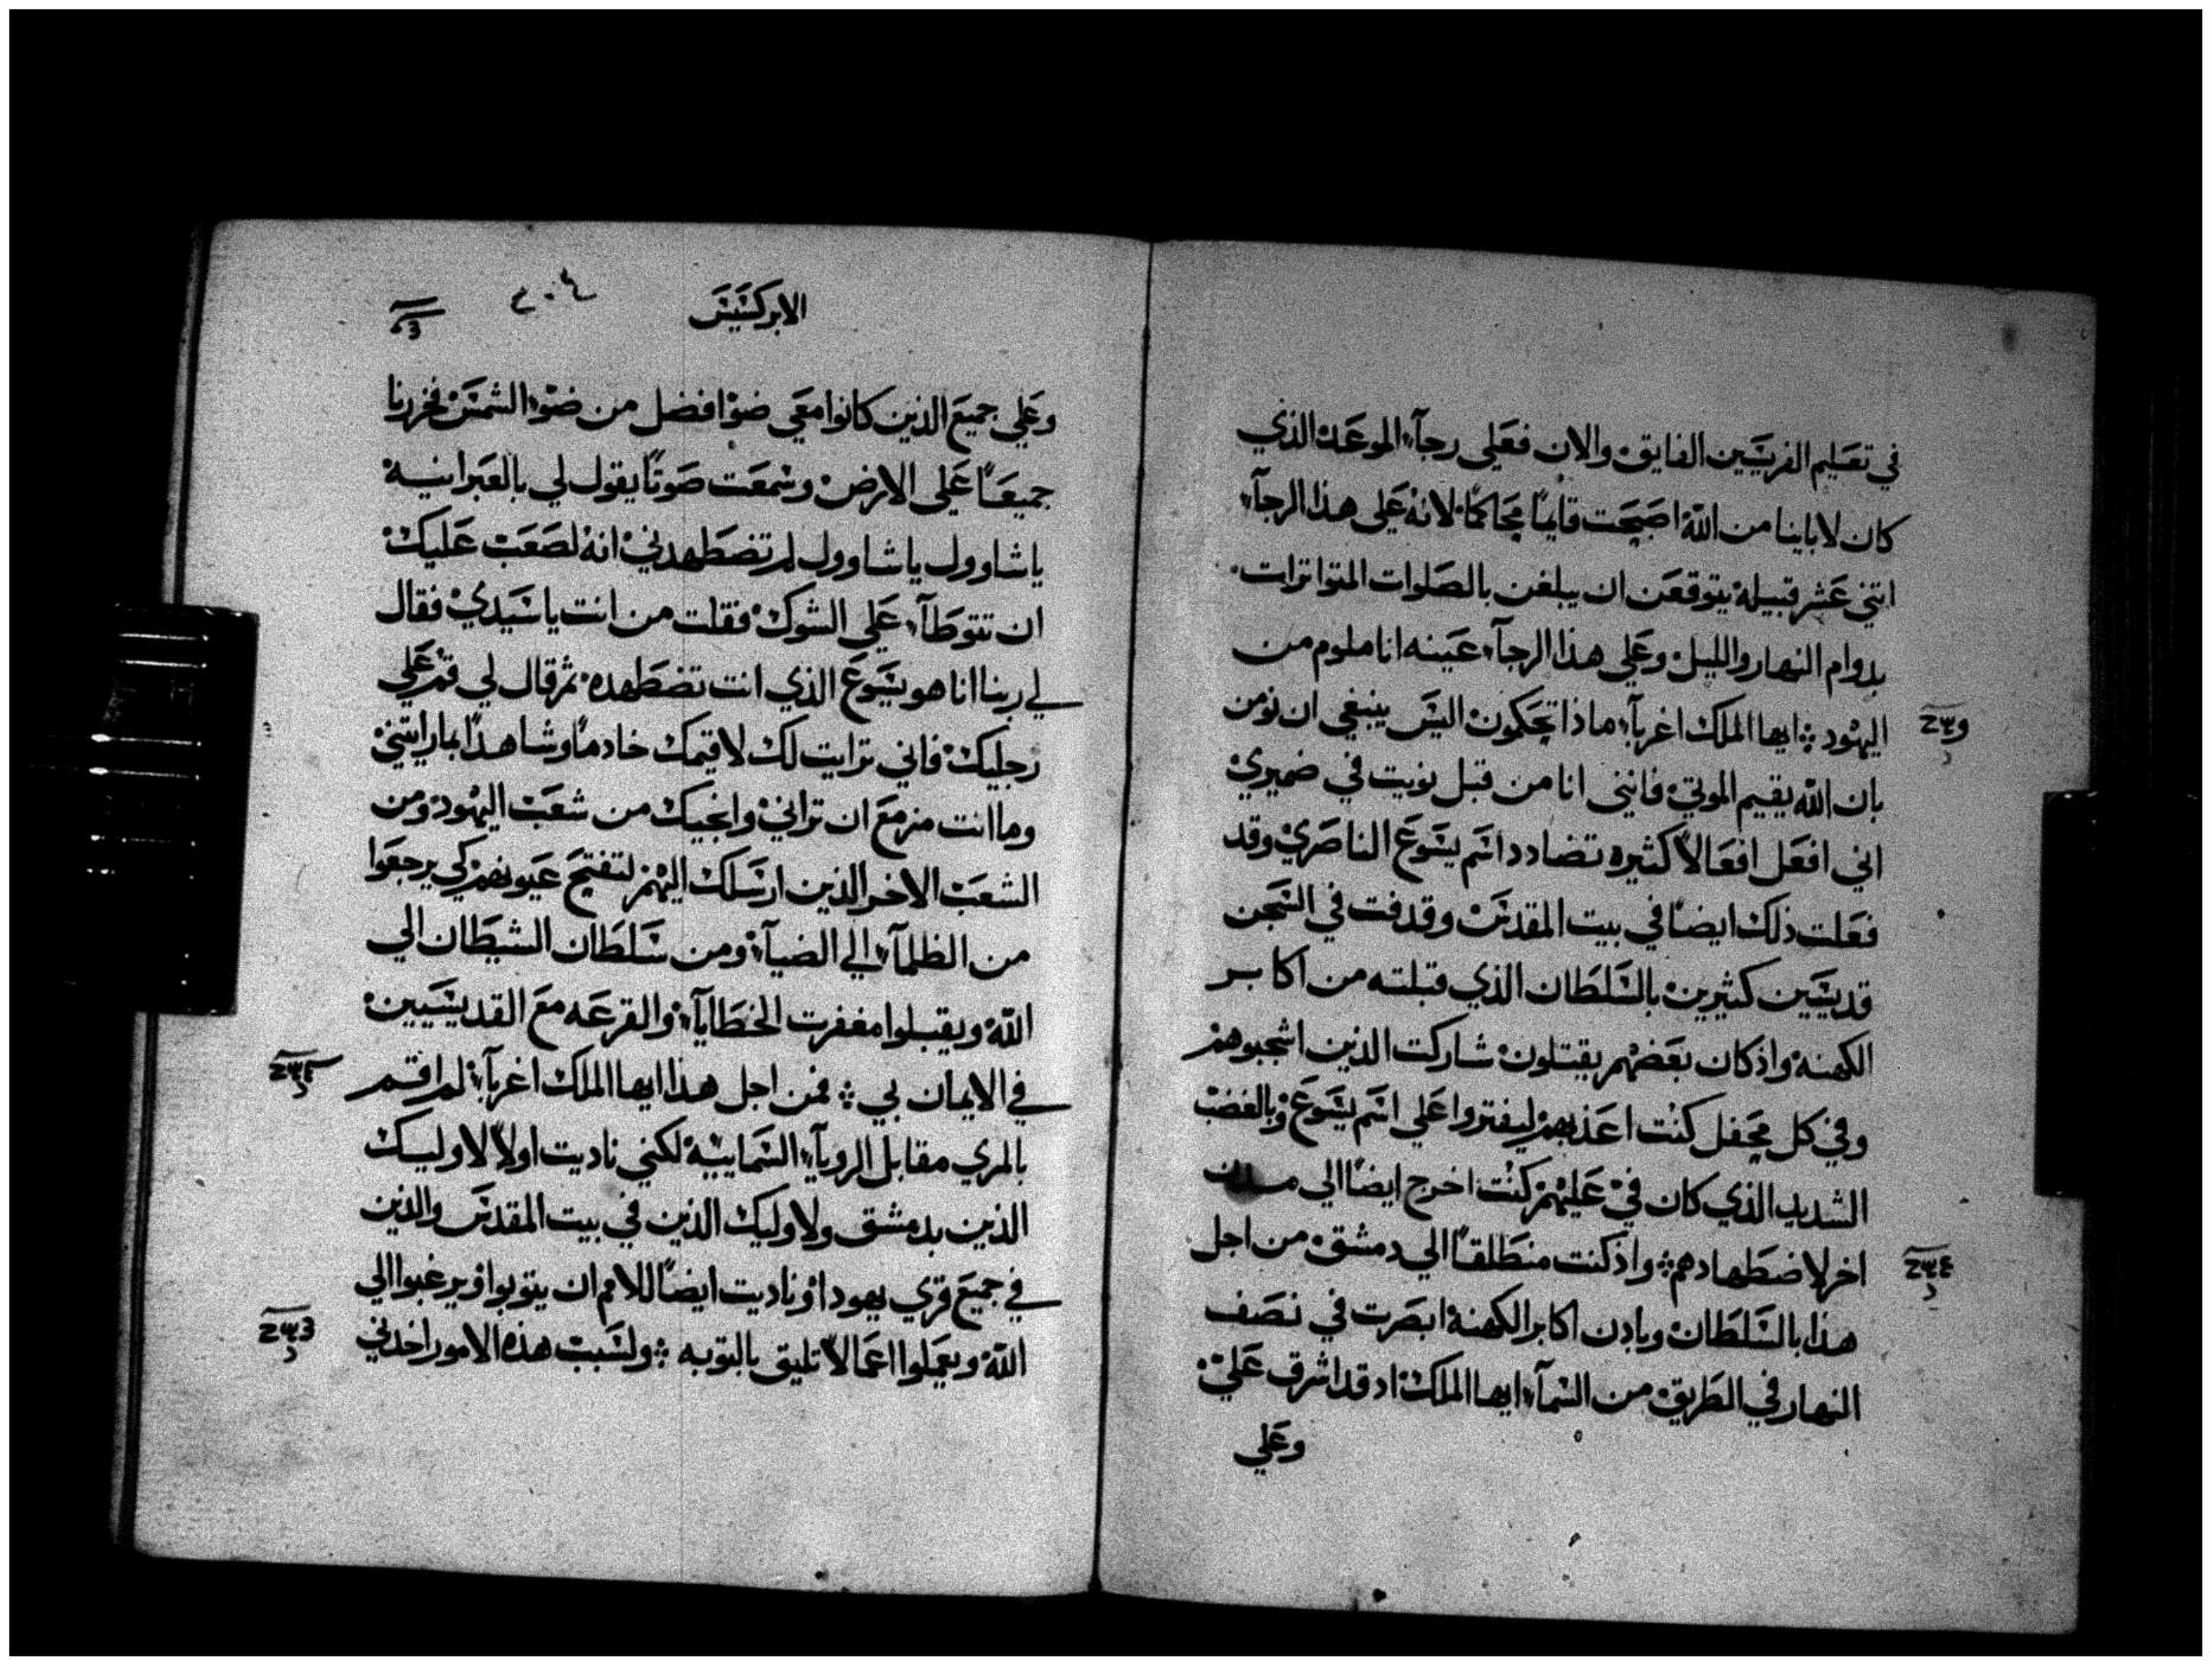 في تعَليم الفريسَيين الفايق والان فعَلى رجآء الموعَد الذي
كان لاباينا من اللّه اصَبحَت قايمًا محَاكمًا لانه عَلى هذا الرجآء
اتني عَشر قبيله يتوقعَن ان يبلغن بالصَلوات المتواترات
بدوام النهار والليل وعَلي هذا الرجآء عَينه انا ملوم من
اليهود ایها الملك اغربآء ماذا تحَكمون اليسَ ينبغي ان نومن
بان اللّه يقيم الموتي فانني انا من قبل نويت في ضميري
اني افعَل افعَالاً كثيره تضادد اسَم يسَوعَ الناصَري وقد
فعَلت ذلك ايضًا في بيت المقدسَ وقدفت في السَجن
قديسَيين كثيرين بالسَلطَان الذي قبلته من اكابر
الكهنه واذ كان بعَضهم يقتلون شاركت الذين اشجبوهم
وفي كل محَفل كنت اعَذبهم ليفتروا عَلي اسَم يسَوعَ وبالغضب
الشديد الذي كان فيَّ عَليهم كنت اخرج ايضًا الي مدن
اخر لاضطَهادهم واذ كنت منطَلقًا الي دمشق من اجل
هذا بالسَلطَان وبادن اكابر الكهنة ابصَرت في نصَف
النهار في الطَريق من السَمآء ايها الملك اد قد اشرق عَليّ
وعَلي
الابركسَيسَ
٢٠٤
وعَلي جميعَ الذين كانوا معَي ضوًا افضل من ضوء الشمسَ فخررنا
جميعًَا عَلى الارض وسَمعَت صَوتًا يقول لي بالعَبرانيه
ياشاوول ياشاوول لم تضطَهدني انه لصَعَب عَليك
ان تتوطَآء عَلي الشوك فقلت من انت ياسَيدي فقال
لي ربنا انا هو يسَوعَ الذي انت تضطَهده ثم قال لي قم عَلي
رجليك فاني ترايت لك لاقيمك خادمًا وشاهدًا بما رايتني
وما انت مزمعَ ان تراني وانجيك من شعَب اليهود ومن
الشعَب الاخر الذين ارسَلك اليهم لتفتحَ عَيونهم كي يرجعَوا
من الظلمآء الي الضيآء ومن سَلطَان الشيطَان الي
اللّه ويقبلوا مغفرت الخطَايآء والقرعَه معَ القديسَيين
في الايمان بي فمن اجل هذا ايها الملك اغربآء لم اقم
بالمري مقابل الرويآء السَمايية لكني ناديت اولاً لاوليك
الذين بدمشق ولاوليك الذين في بيت المقدسَ والذين
في جميعَ قري يهودا وناديت ايضًا للامم ان يتوبوا ويرغبوا الي
اللّه ويعَملوا اعَمالاً تليق بالتوبه ولسَبب هذه الامور اخدني